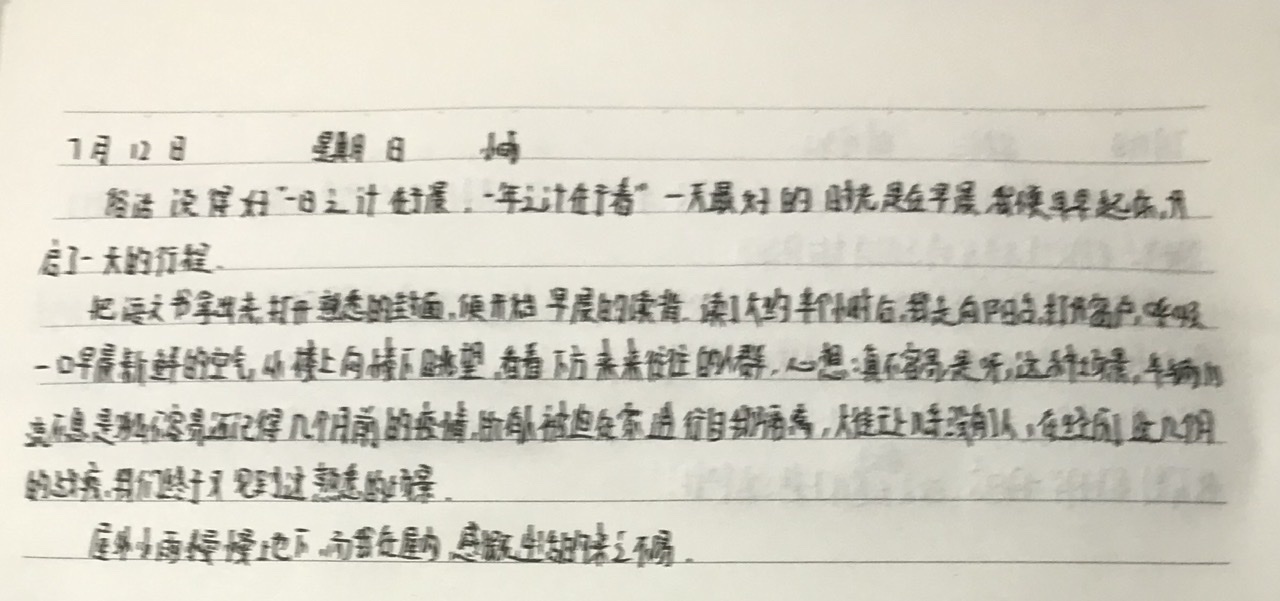 7月12日 星期日 小雨
俗话说得好"一日之计在于晨,一年之计在于春"一天最好的时光是在早晨 我便早早起床,开
启了一天的行程.
把语文书拿出来,打开熟悉的封面,便开始早晨的读书.读了大约半个小时后,我走向阳台,打开窗户,呼吸
一口早晨新鲜的空气,从楼上向楼下眺望,看看下方来来往往的人群,心想:真不容易是呀,这种场景,车辆川
息是那么不容易还记得几个月前的疫情,所有人被迫在家进行自我隔离,大街上没有人,在经历几个月
的战疫,我们终于又见到这熟悉的场景.
屋外小雨慢慢地下,而我在屋内,感慨生活的来之不易.